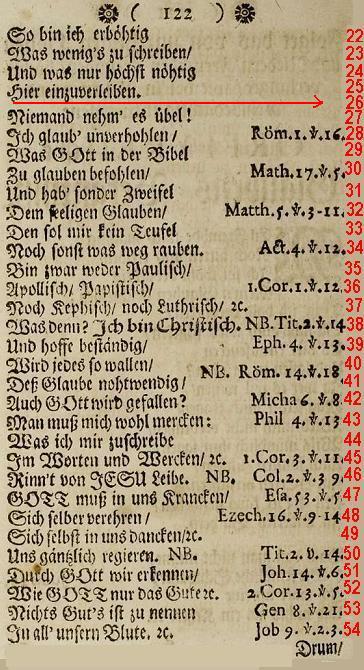 ( 122 )
So bin ich erböhtig 22
Was wenig's zu schreiben/ 23
Und was nur höchst nöhtig 24
Hier einzuverleiben. 25
26
Niemand nehm' es übel! 27
Ich glaub' unverhohlen/ Röm.1.v.16. 28
Was GOtt in der Bibel 29
Zu glauben befohlen/ Math.17.v.5. 30
Und hab' sonder Zweifel 31
Dem seeligen Glauben/ Matth.5.v.3-11. 32
Den sol mir kein Teufel 33
Noch sonst was weg rauben. Act.4.v.12. 34
Bin zwar weder Paulisch/ 35
Apollisch/ Papistisch/ 1.Cor.1.v.12. 36
Noch Kephisch/ noch Luthrisch/ ꝛc. 37
Was denn? Ich bin Christisch. NB.Tit.2.v.14 38
Und hoffe beständig/ Eph.4.v.13. 39
Wird jedes so wallen/ NB. Röm.14.v.18 40
Deß Glaube nohtwendig/ 41
Auch GOtt wird gefallen? Micha 6.v.8. 42
Man muß mich wohl mercken: Phil 4.v.13 43
Was ich mir zuschreibe 44
Im Worten und Wercken/ ꝛc. 1.Cor.3.v.11. 45
Rinn't von JESU Leibe. NB. Col.2.v.3 9. 46
GOTT muß in uns Krancken/ Esa.53.v.5. 47
Sich selber verehren/ Ezech.16.v.9-14 48
Sich selbst in uns dancken/ꝛc. 49
Uns gäntzlich regieren. NB. Tit.2.v.14. 50
Durch GOtt wir erkennen/ Joh.14.v.6. 51
Wie GOTT nur das Gute ꝛc. 2.Cor.13.v.5. 52
Nichts Gut's ist zu nennen Gen 8.v.21. 53
In all' unsern Blute. ꝛc. Job 9.v.2.3. 54
Drum/